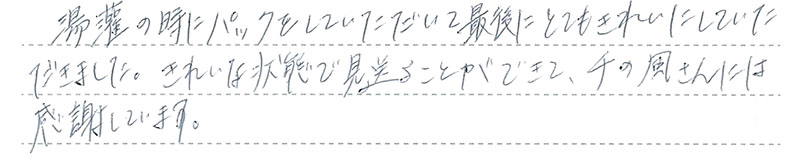 湯灌の時にパックをしていただいて最後にとてもきれいにしていた
だきました。きれいな状態で見送ることができて、千の風さんには
感謝しています。